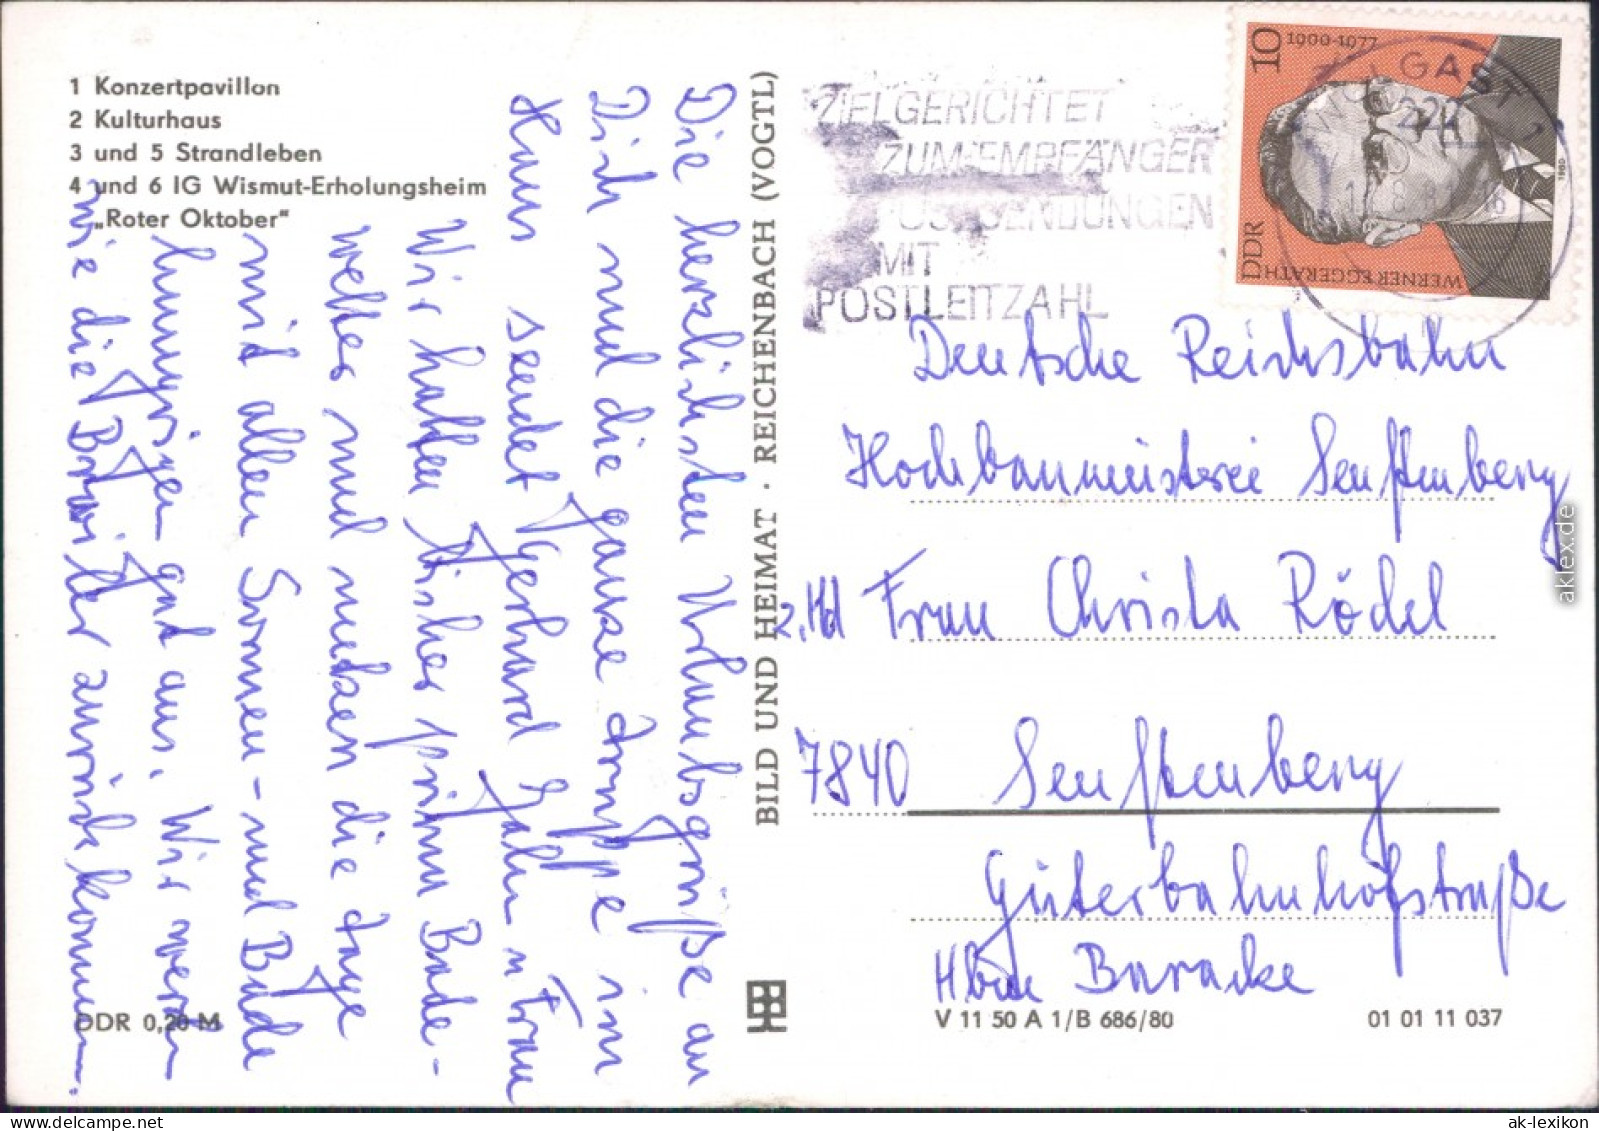 1 Konzertpavillon
2 Kulturhaus
3 und 5 Strandleben
4 und 6 IG Wismut-Erholungsheim
„Roter Oktober“
Die herzlichsten Urlaubsgrüße an
Dich und die ganze Truppe im
Haus sendet Gerhard Hahn u Frau
Wir hatten bisher prima Bade-
wetter und nutzen die Tage
mit allen Sonnen- und Bade
hungrigen gut aus. Wir werden
wie die Braun zurückkommen.
DDR 0,20 M
BILD UND HEIMAT · REICHENBACH (VOGTL)
ZIELGERICHTET
ZUM EMPFÄNGER
POSTSENDUNGEN
MIT
POSTLEITZAHL
10
1900-1977
DDR
WERNER EGGERATH
1980
WOLGAST 1
222
Deutsche Reichsbahn
Hochbaumeisterei Senftenberg
z.Hd Frau Christa Rödel
7840 Senftenberg
Güterbahnhofstraße
Hbm Baracke
V 11 50 A 1/B 686/80
01 01 11 037
aklex.de
ak-lexikon